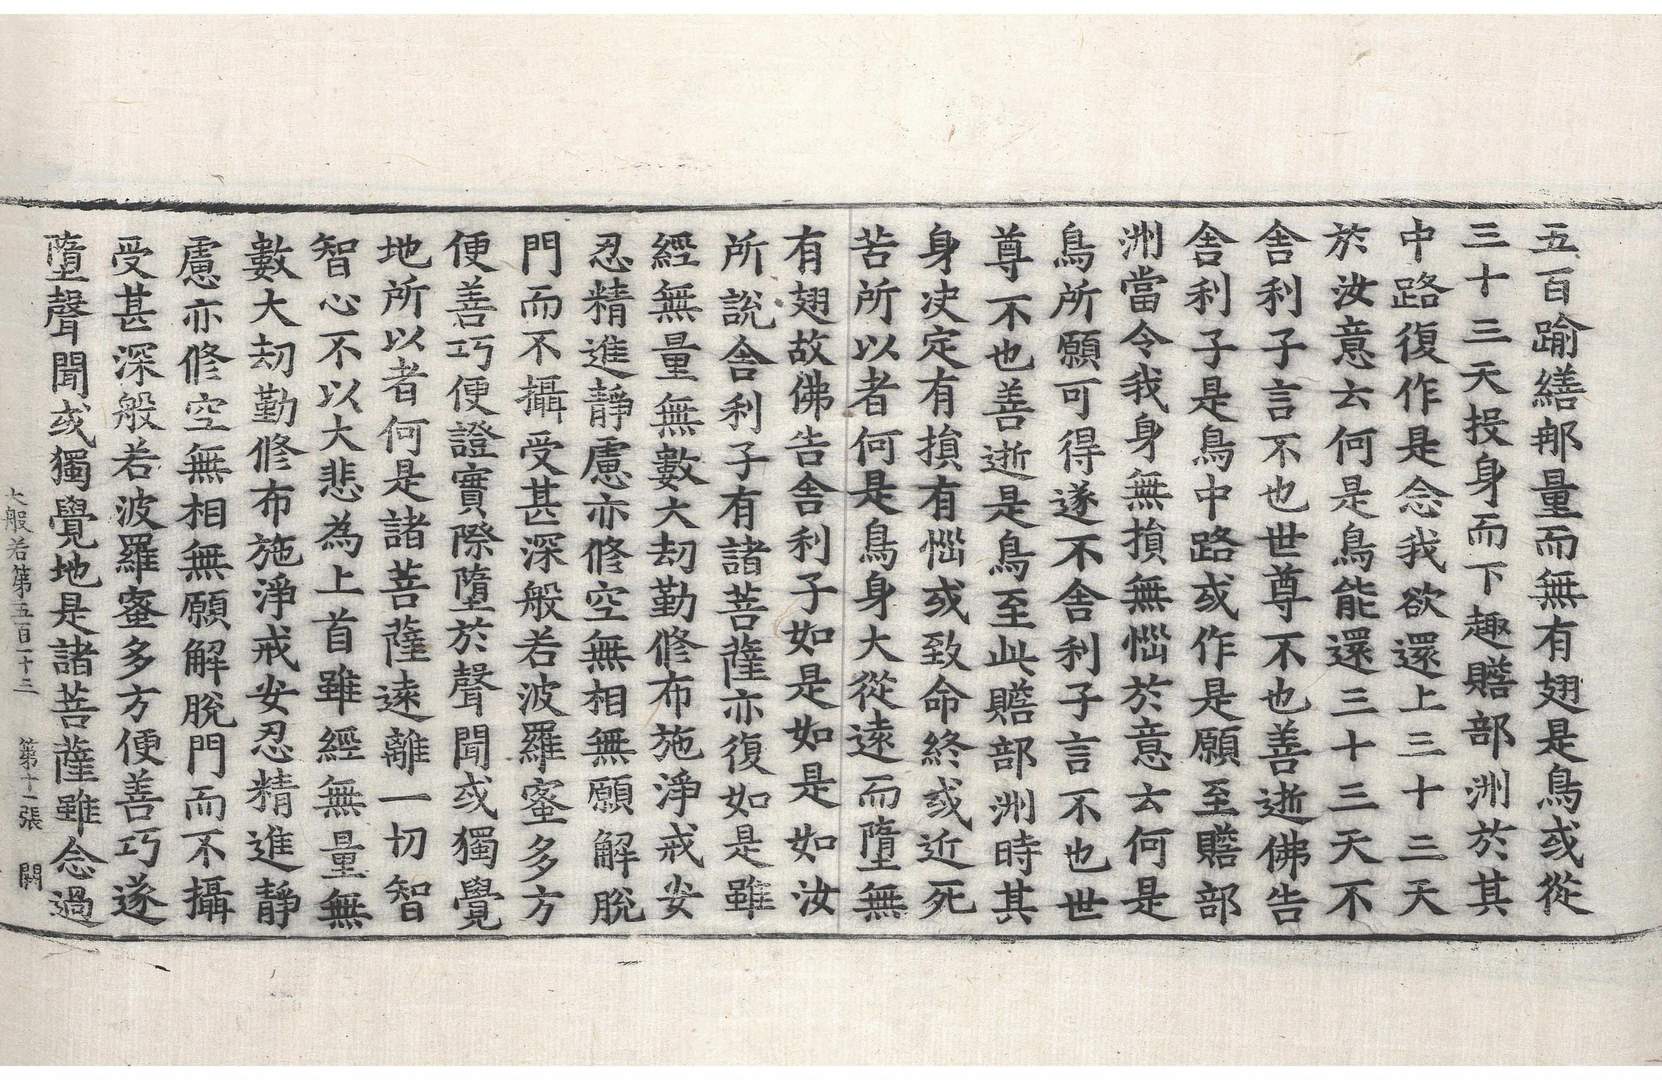 五百踰繕那量而無有翅是鳥或從
三十三天投身而下趣贍部洲於其
中路復作是念我欲還上三十三天
於汝意云何是鳥能還三十三天不
舍利子言不也世尊不也善逝佛告
舍利子是鳥中路或作是願至贍部
洲當令我身無損無惱於意云何是
鳥所願可得遂不舍利子言不也世
尊不也善逝是鳥至此贍部洲時其
身决定有損有惱或致命終或近死
苦所以者何是鳥身大從遠而墮無
有翅故佛告舍利子如是如是如汝
所說舍利子有諸菩薩亦復如是雖
經無量無數大劫勤修布施淨戒安
忍精進靜慮亦修空無相無願解脫
門而不攝受甚深般若波羅蜜多方
便善巧便證實際墮於聲聞或獨覺
地所以者何是諸菩薩遠離一切智
智心不以大悲為上首雖經無量無
數大劫勤修布施淨戒安忍精進靜
慮亦修空無相無願解脫門而不攝
受甚深般若波羅蜜多方便善巧遂
墮聲聞或獨覺地是諸菩薩雖念過
大般若第五百一十三 第十二張 闕